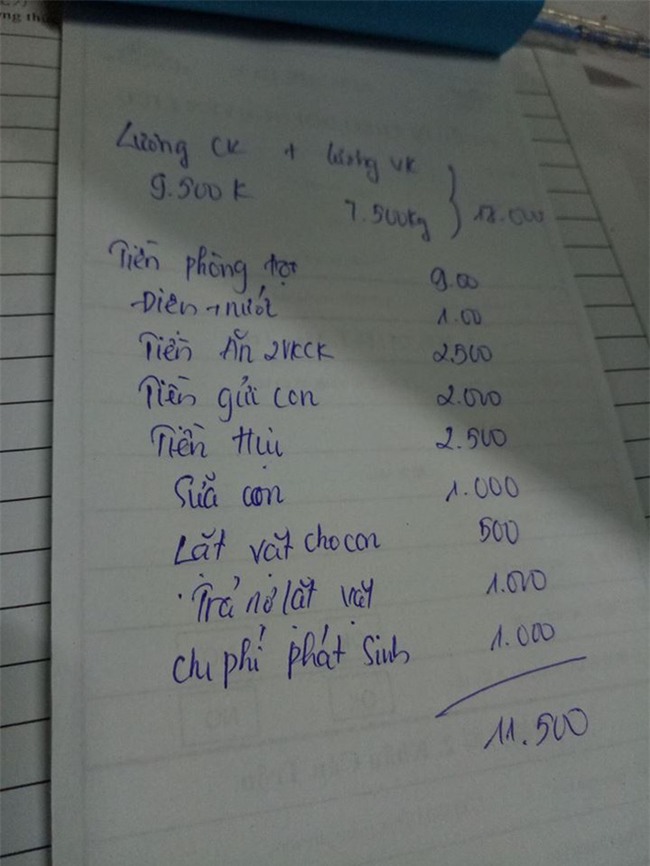 Lương CK + lương VK
9.500K 7.500kg } 18.000
Tiền phòng trọ 9.00
Điên + nước 1.00
Tiền Ăn 2VKCK 2.500
Tiền gửi con 2.000
Tiền Hụi 2.500
Sữa con 1.000
Lặt vặt cho con 500
Trả nợ lặt vặt 1.000
Chi phí phát sinh 1.000
11.500